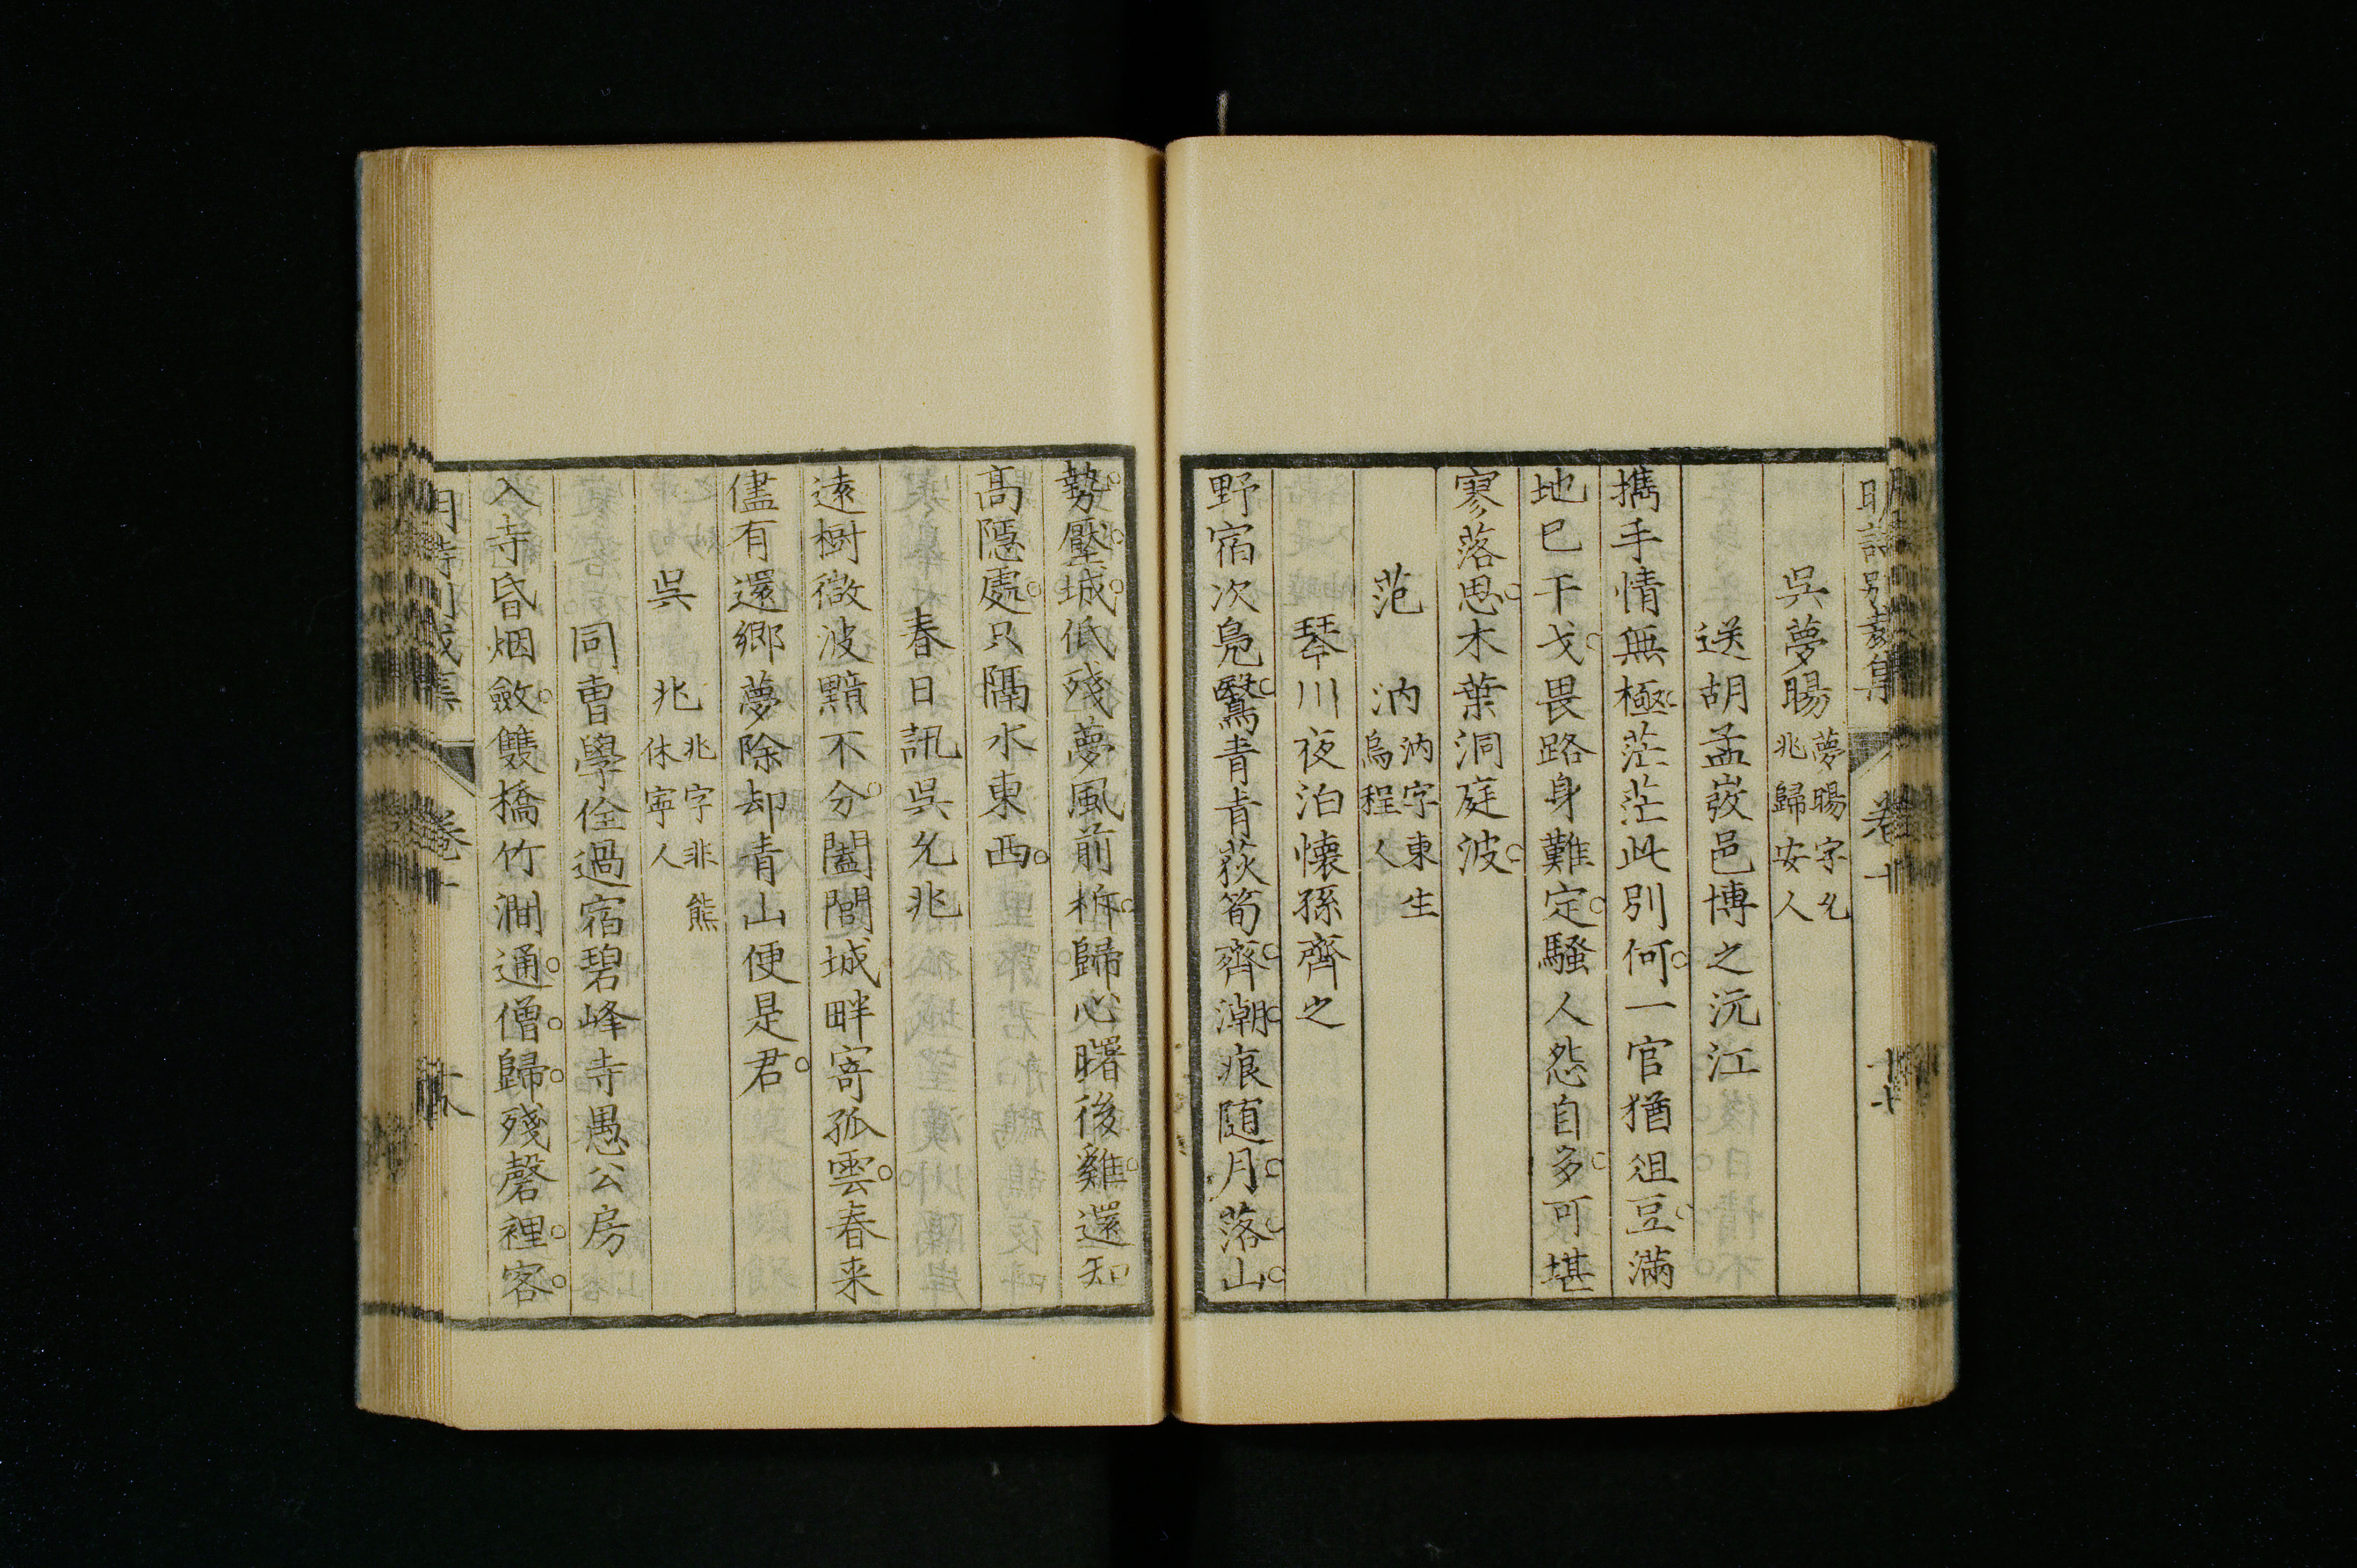 吳夢暘夢暘字允兆歸安人
送胡孟弢邑博之沅江
攜手情無極茫茫此別何一官猶俎豆滿
地已干戈畏路身難定騷人怨自多可堪
寥落思木葉洞庭波
范汭汭字東生烏程人
琴川夜泊懷孫齊之
野宿次鳧鷖青青荻筍齊潮痕随月落山
勢壓城低殘夢風前柝歸心曙後雞還知
高隱處只隔水東西
春日訊吳允兆
遠樹微波黯不分闔閭城畔寄孤雲春来
儘有還鄉夢除却青山便是君
吳兆兆字非熊休寧人
同曹學佺過宿碧峰寺愚公房
入寺昏烟斂雙橋竹澗通僧歸殘磬裡客